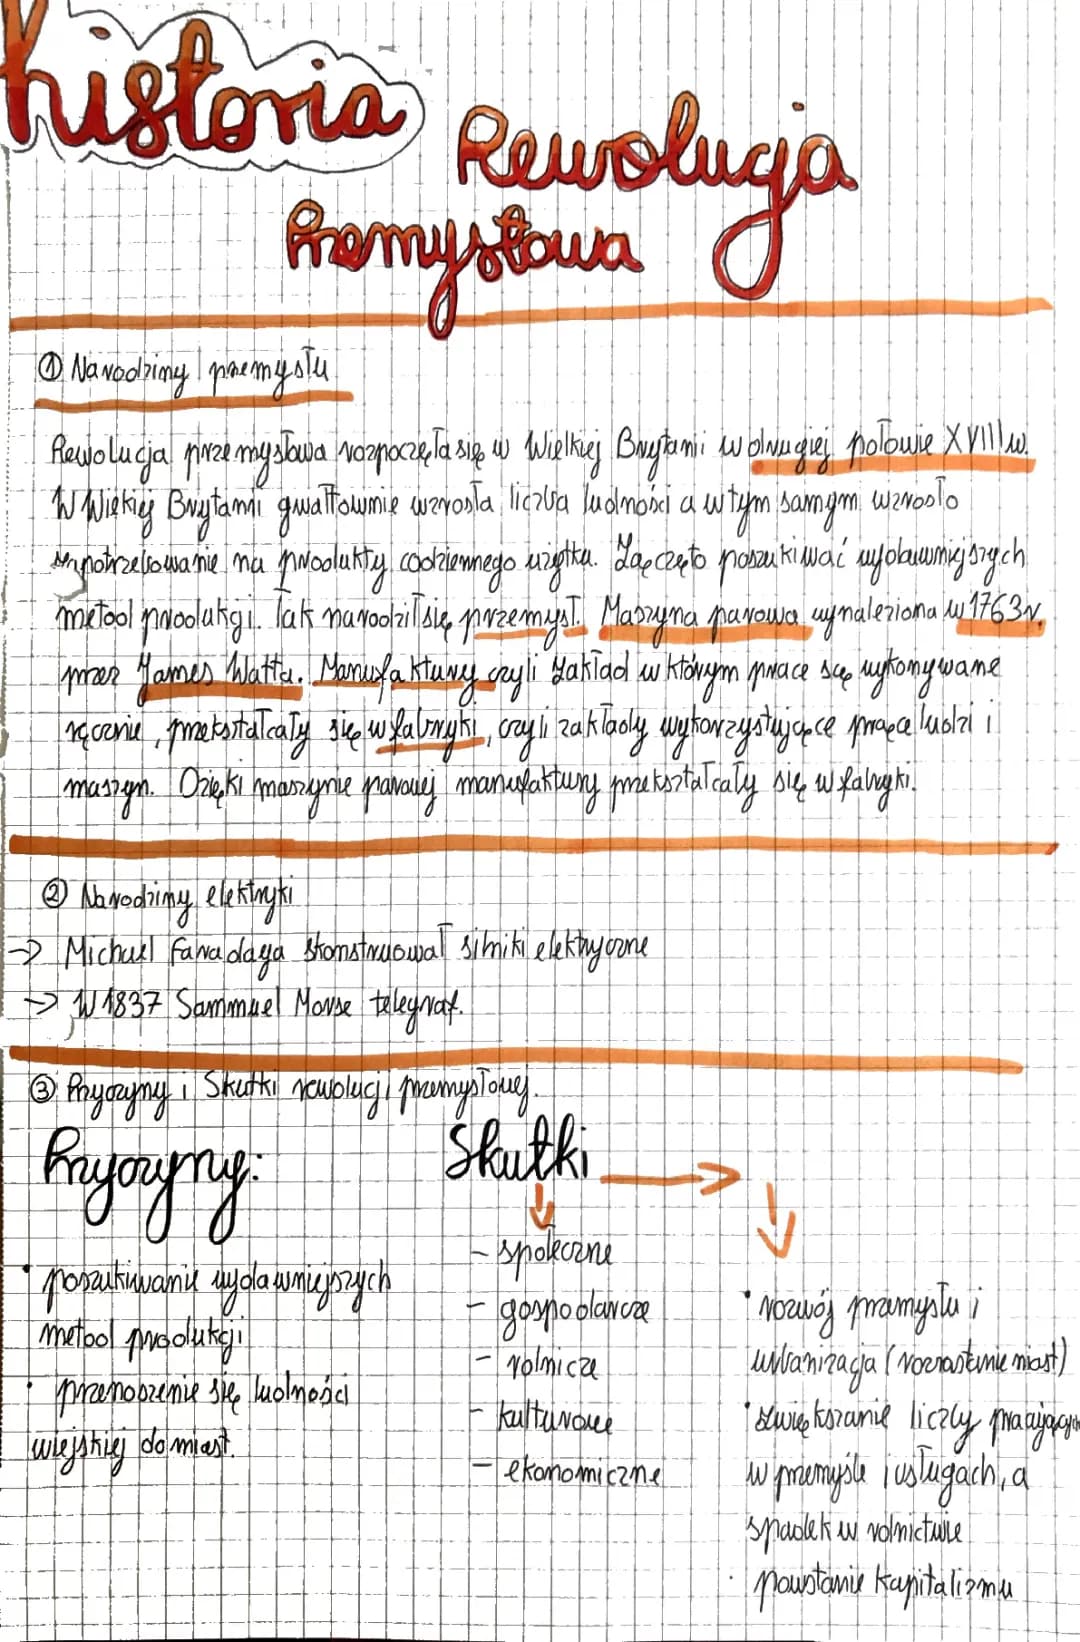 historia
Rewolucja
Przemysłowa
① Narodziny przemysłu
Rewolucja przemysłowa rozpoczęła się w Wielkiej Brytanii w drugiej połowie XVIII w.
W Wielkiej Brytanii gwałtownie wzrosła liczba ludności a w tym samym wzrosło
zapotrzebowanie na produkty codziennego użytku. Zaczęto poszukiwać wydawniejszych
metod produkcji. Tak narodził się przemysł. Maszyna parowa wynaleziona w 1763r.
przez James Watta. Manufaktury czyli zakład w którym prace są wykonywane
ręcznie, przekształcały się w fabryki, czyli zakłady wykorzystujące pracę ludzi i
maszyn. Dzięki maszynie parowej manufaktury przekształcały się w fabryki.
② Narodziny elektryki
→ Michael Faradaya skonstruował silniki elektryczne
→ W 1837 Sammuel Morse telegraf.
③ Przyczyny i Skutki rewolucji przemysłowej.
Przyczyny: Skutki →
• poszukiwanie wydawniejszych
metod produkcji
• przenoszenie się ludności
wiejskiej do miast.
↓
- społeczne
- gospodarcze
- rolnicze
- kulturowe
- ekonomiczne
↓
• rozwój przemysłu i
urbanizacja (rozrastanie miast)
• zwiększanie liczby pracujących
w przemyśle i usługach, a
spadek w rolnictwie
• powstanie kapitalizmu